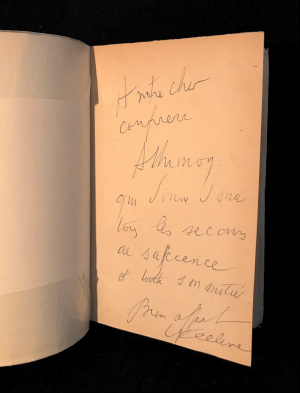 A notre cher
confrere
qui
tous les secours
de sa science
et toute son amitié
Bien affect
LF Celine